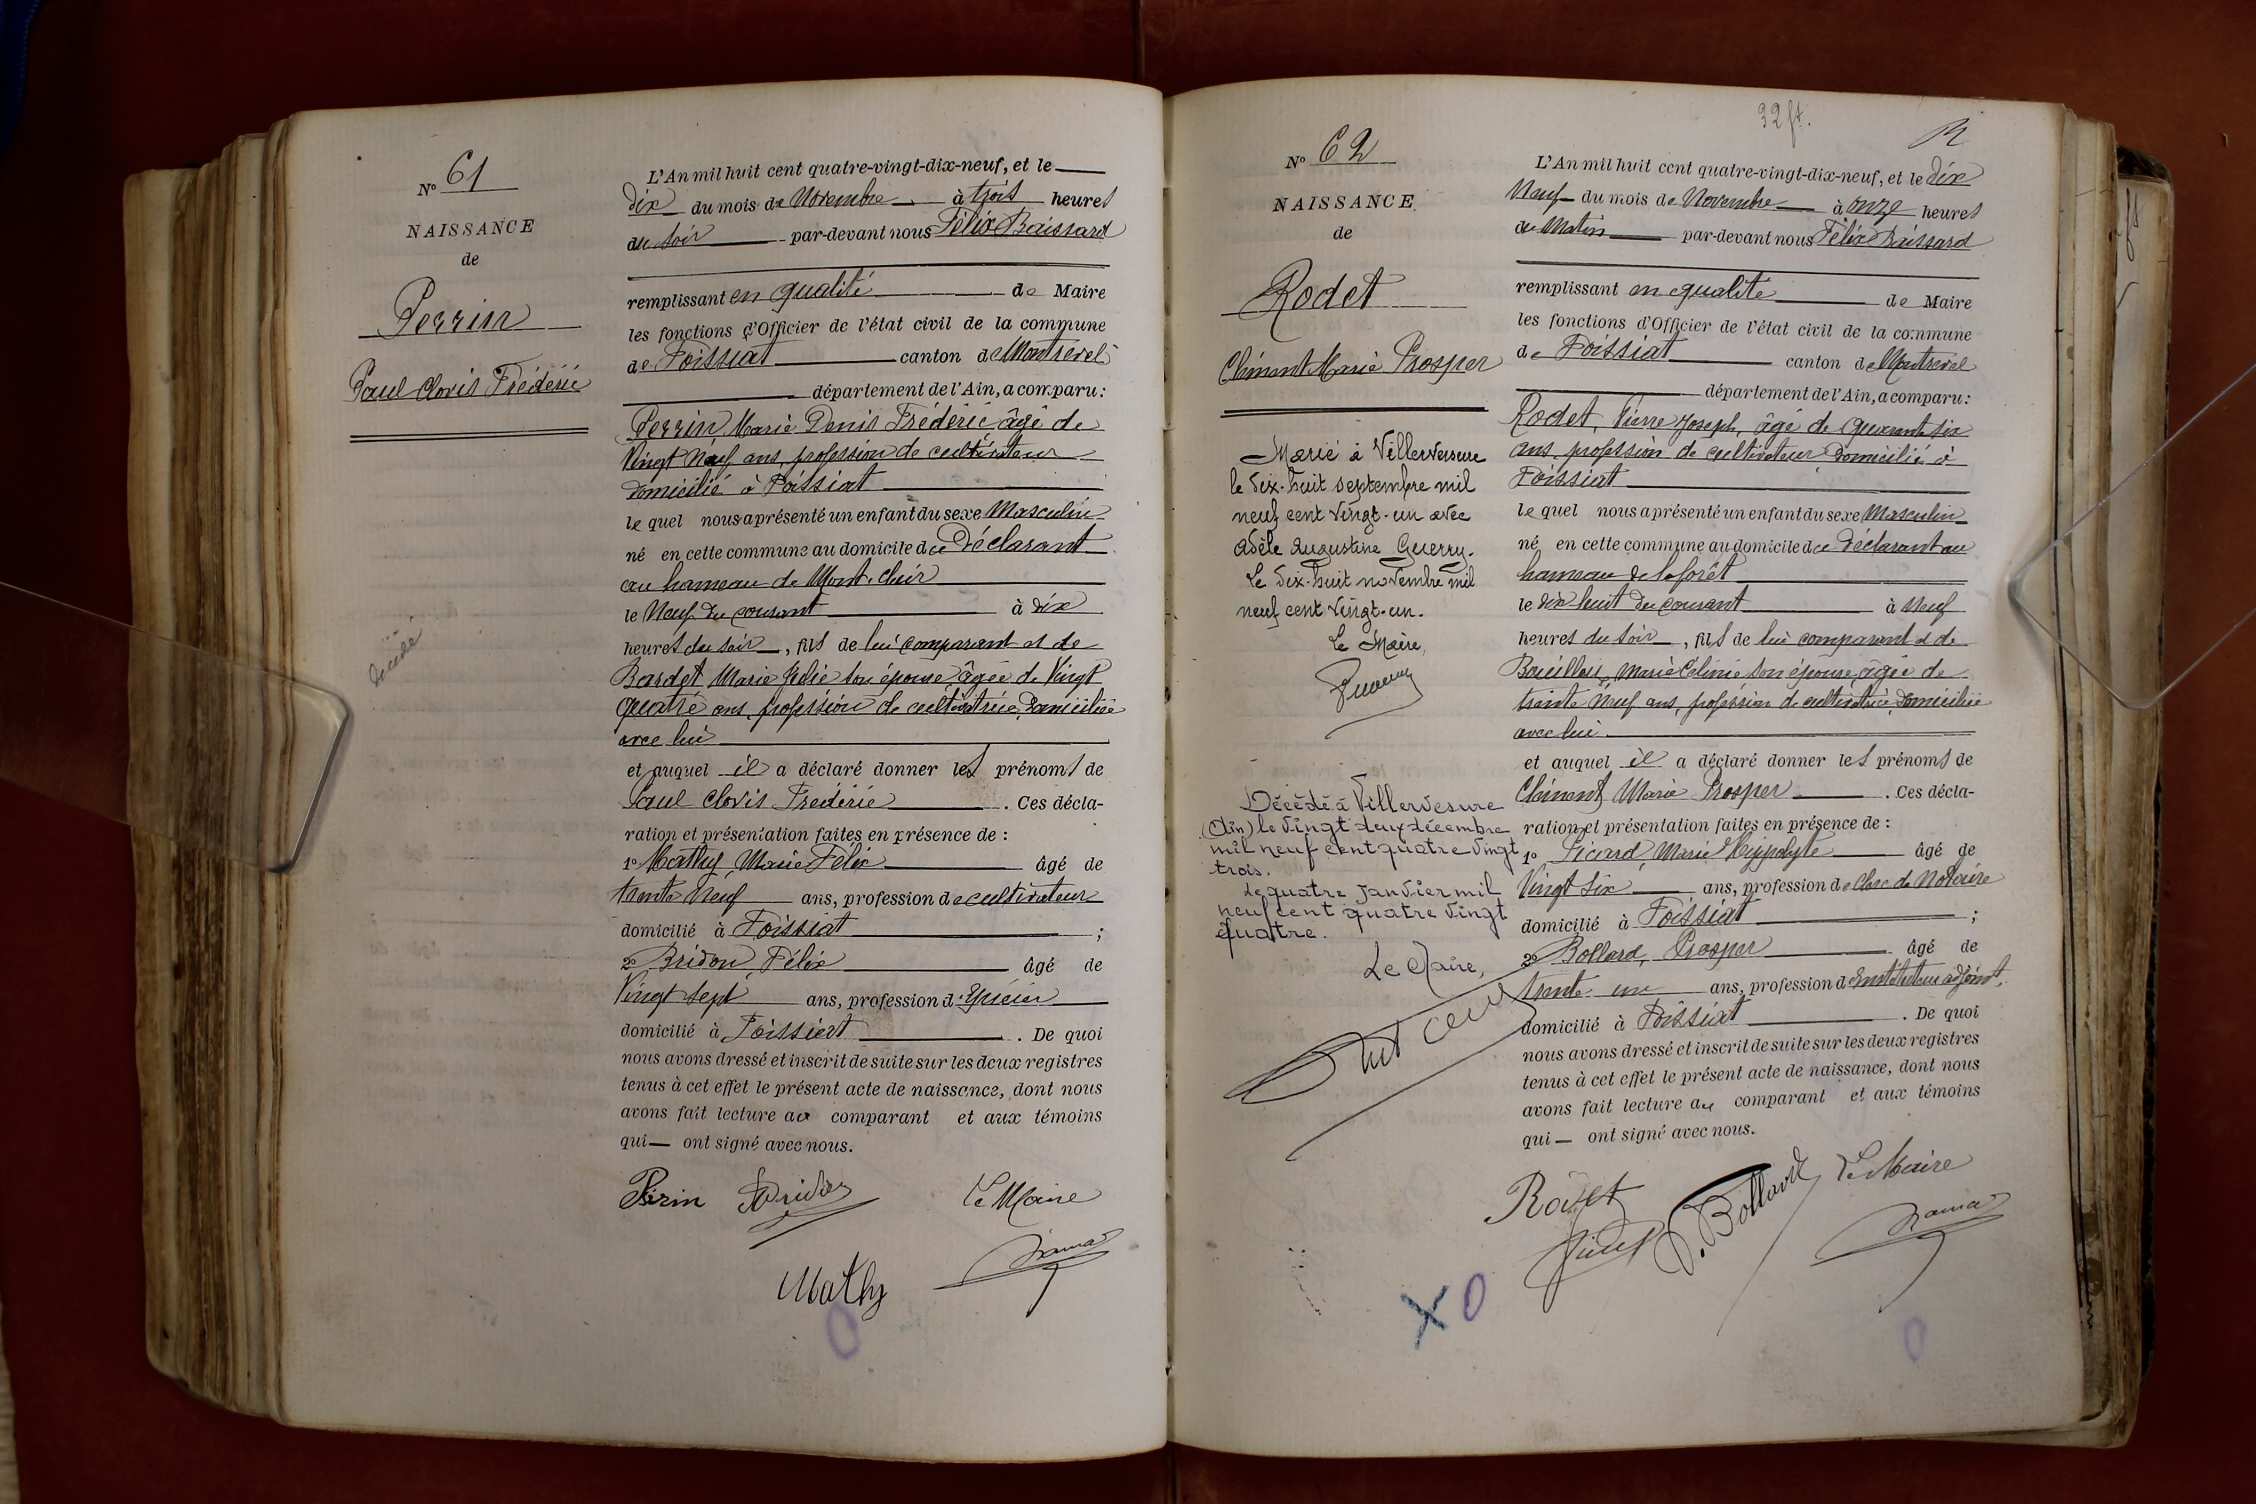 N° 61
NAISSANCE
de
Perrin
Paul Clovis Frédéric
décédé
L'An mil huit cent quatre-vingt-dix-neuf, et le
dix du mois de Novembre à trois heures
du soir par-devant nous Félix Baissard
remplissant en qualité de Maire
les fonctions d'Officier de l'état civil de la commune
de Foissiat canton de Montrevel
département de l'Ain, a comparu :
Perrin, Marie Denis Frédéric âgé de
Vingt Neuf ans, profession de cultivateur
domicilié à Foissiat
le quel nous a présenté un enfant du sexe Masculin
né en cette commune au domicile du Déclarant
au hameau de Mont
le Neuf du courant à dix
heures du soir, fils de lui comparant et de
Bardet Marie son épouse âgée de Vingt
quatre ans, profession de cultivatrice, Domiciliée
avec lui
et auquel il a déclaré donner les prénoms de
Paul Clovis Frédéric. Ces décla-
ration et présentation faites en présence de :
1° Mathy, Marie Félix âgé de
trente Neuf ans, profession de cultivateur
domicilié à Foissiat ;
2° Bridon, Félix âgé de
Vingt sept ans, profession d'Epicier
domicilié à Foissiat. De quoi
nous avons dressé et inscrit de suite sur les deux registres
tenus à cet effet le présent acte de naissance, dont nous
avons fait lecture au comparant et aux témoins
qui ont signé avec nous.
Perin Bridon Le Maire
Mathy
32 ft.
N° 62
NAISSANCE
de
Rodet
Clément Marie Prosper
Marié à Villereversure
le dix-huit septembre mil
neuf cent vingt-un avec
Adèle Augustine Guerry.
Le dix-huit novembre mil
neuf cent vingt-un.
Le Maire,
Décédé à Villeversure
(Ain) le vingt deux décembre
mil neuf cent quatre vingt
trois.
Le quatre janvier mil
neuf cent quatre vingt
quatre.
Le Maire,
L'An mil huit cent quatre-vingt-dix-neuf, et le dix
Neuf du mois de Novembre à onze heures
du Matin par-devant nous Félix Baissard
remplissant en qualité de Maire
les fonctions d'Officier de l'état civil de la commune
de Foissiat canton de Montrevel
département de l'Ain, a comparu :
Rodet, Pierre Joseph, âgé de Quarante six
ans, profession de cultivateur Domicilié à
Foissiat
le quel nous a présenté un enfant du sexe Masculin
né en cette commune au domicile du Déclarant au
hameau de la forêt
le dix huit du courant à Neuf
heures du soir, fils de lui comparant et de
Marie Célinie son épouse âgée de
trente Neuf ans, profession de cultivatrice, Domiciliée
avec lui.
et auquel il a déclaré donner les prénoms de
Clément Marie Prosper. Ces décla-
ration et présentation faites en présence de :
1° Picard, Marie Hippolyte âgé de
Vingt six ans, profession de clerc de Notaire
domicilié à Foissiat ;
2° Bollard, Prosper âgé de
trente un ans, profession d'Instituteur adjoint,
domicilié à Foissiat. De quoi
nous avons dressé et inscrit de suite sur les deux registres
tenus à cet effet le présent acte de naissance, dont nous
avons fait lecture au comparant et aux témoins
qui ont signé avec nous.
Rodet P. Bollard Le Maire
X O